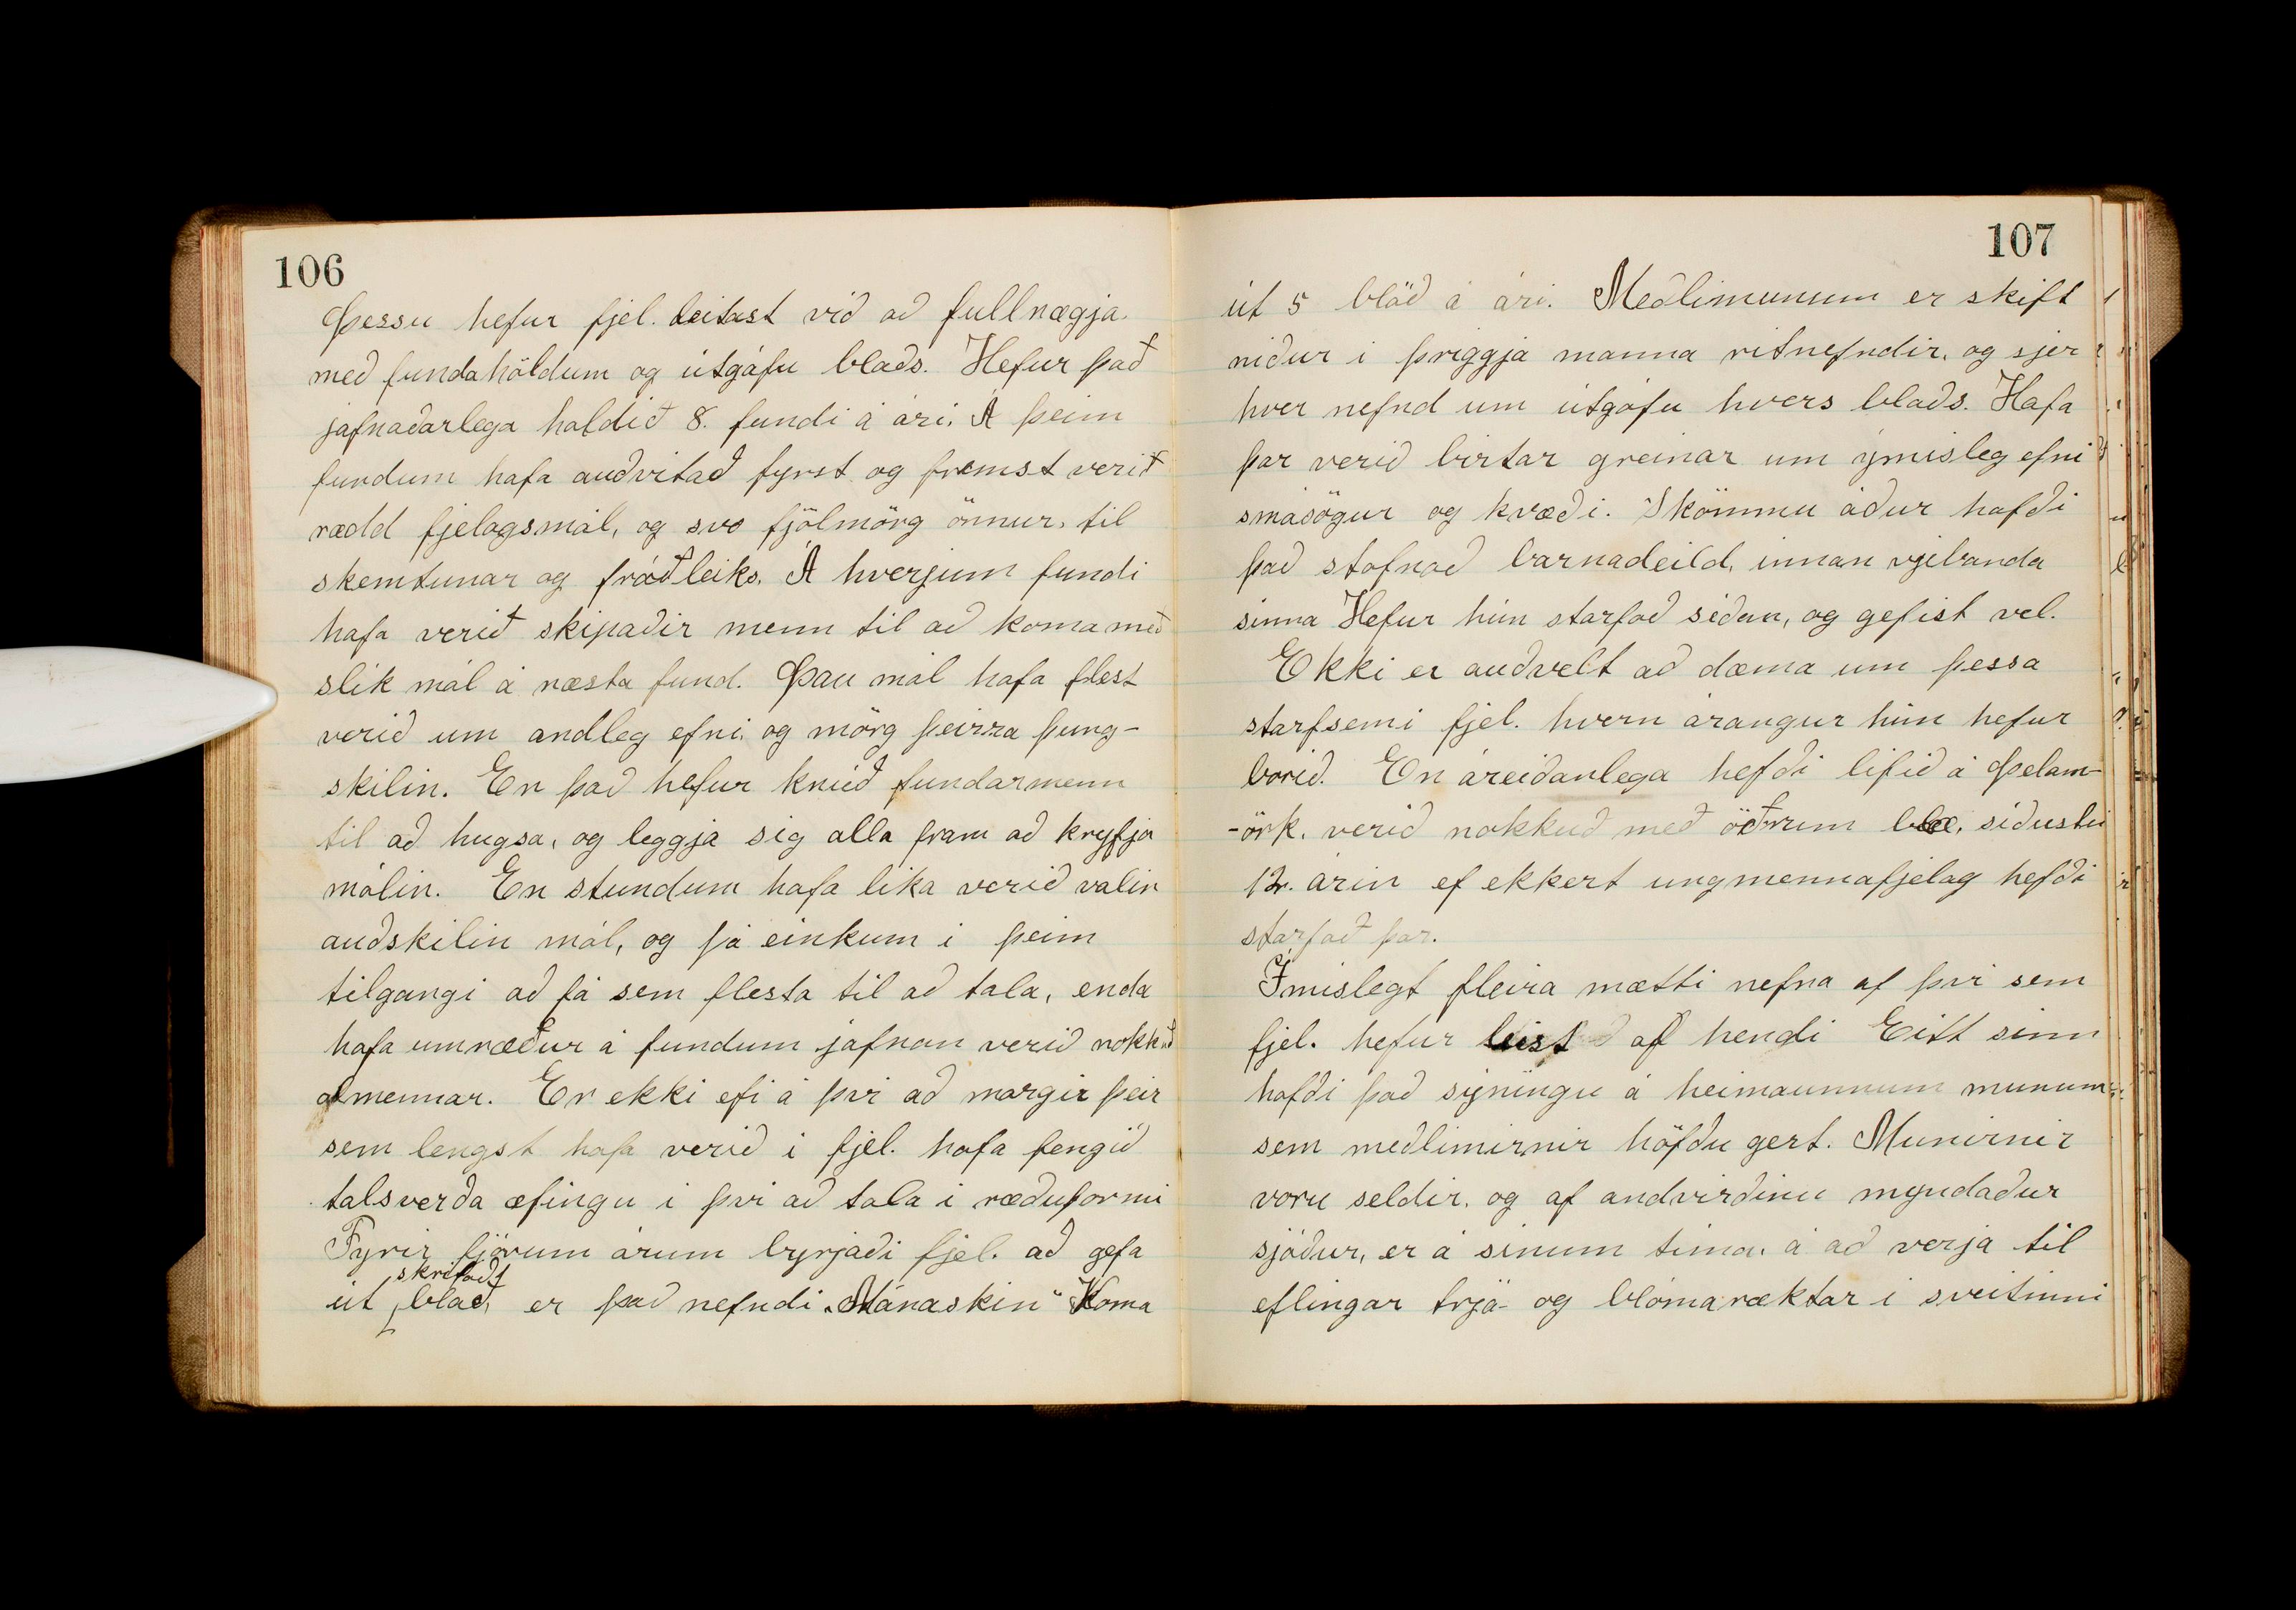 106
Þessu hefur fjel. leitast við að fullnægja
með fundahöldum og útgáfu blaðs. Hefur það
jafnaðarlega haldið 8. fundi á ári. Á þeim
fundum hafa auðvitað fyrst og fremst verið
rædd fjelagsmál, og svo fjölmörg önnur, til
skemtunar og fróðleiks. Á hverjum fundi
hafa verið skipaðir menn til að koma með
slík mál á næsta fund. Þau mál hafa flest
verið um andleg efni og mörg þeirra þung-
skilin. En það hefur knúð fundarmenn
til að hugsa, og leggja sig alla fram að kryfja
málin. En stundum hafa líka verið valin
auðskilin mál, og þá einkum í þeim
tilgangi að fá sem flesta til að tala, enda
hafa umræður á fundum jafnan verið nokkuð
almennar. Er ekki efi á því að margir þeir
sem lengst hafa verið í fjel. hafa fengið
talsverða æfingu í því að tala í ræðuformi
Fyrir fjórum árum byrjaði fjel. að gefa
skrifað
út blað, er það nefndi „Mánaskin" Koma
107
út 5 blöð á ári. Meðlimunum er skift
niður í þriggja manna ritnefndir, og sjer
hver nefnd um útgáfu hvers blaðs. Hafa
þar verið birtar greinar um ýmisleg efni
smásögur og kvæði. Skömmu áður hafði
það stofnað barnadeild, innan vjebanda
sinna Hefur hún starfað síðan, og gefist vel.
Ekki er auðvelt að dæma um þessa
starfsemi fjel. hvern árangur hún hefur
borið. En áreiðanlega hefði lífið á Þelam-
-örk. verið nokkuð með öðrum blæ, síðustu
12. árin ef ekkert ungmennafjelag hefði
starfað þar.
Ímislegt fleira mætti nefna af því sem
fjel. hefur leist af hendi Eitt sinn
hafði það sýningu á heimaunnum munum
sem meðlimirnir höfðu gert. Munirnir
voru seldir, og af andvirðinu myndaður
sjóður, er á sínum tíma, á að verja til
eflingar trjá- og blómaræktar í sveitinni